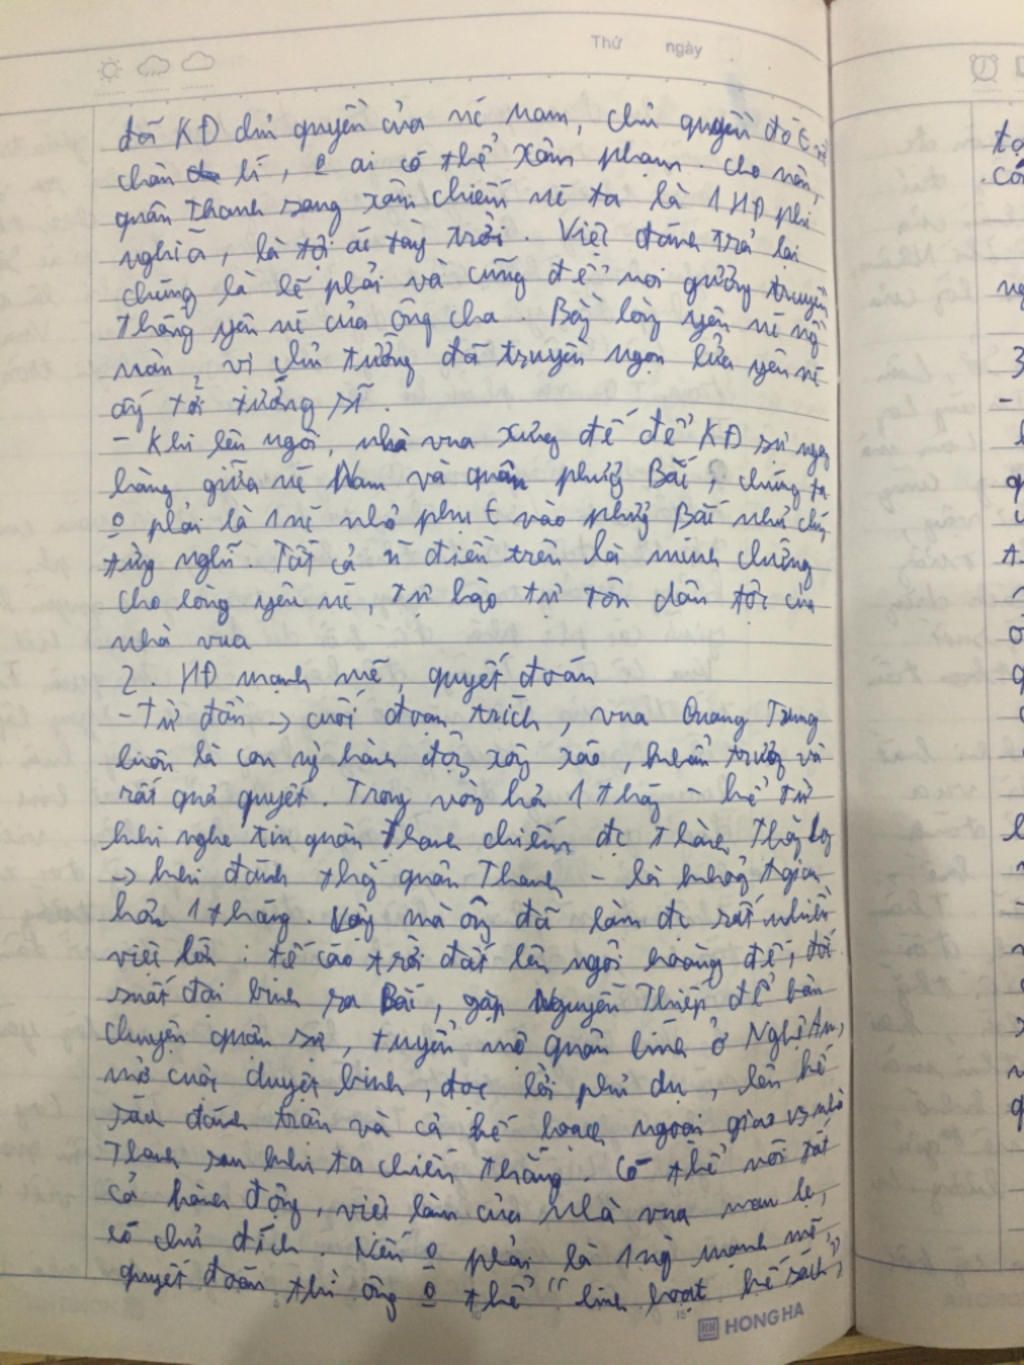 Thứ ngày
đã KĐ chủ quyền của nc Nam, chủ quyền đó E
chân lí, o ai có thể xâm phạm. Cho nên,
quân Thanh sang xâm chiếm nc ta là 1 HĐ phi
nghĩa, là tội ác tày trời. Việc đánh trả lại
chúng là lẽ phải và cũng để noi gương truyền
thống yêu nc của ông cha. Bằng lòng yêu nc nồng
nàn, vị chủ tướng đã truyền ngọn lửa yêu nc
ấy tới tướng sĩ.
- Khi lên ngôi, nhà vua xưng đế để KĐ sự ngang
hàng giữa nc Nam và quân phương Bắc, chúng ta
o phải là 1 nc nhỏ phụ t vào phương Bắc như chúng
từng nghĩ. Tất cả n~ điều trên là minh chứng
cho lòng yêu nc, tự hào tự tôn dân tộc của
nhà vua
2. HĐ mạnh mẽ, quyết đoán
- Từ đầu -> cuối đoạn trích, vua Quang Trung
luôn là con ng hành động xông xáo, khẩn trương và
rất quả quyết. Trong vòng hơn 1 tháng - kể từ
khi nghe tin quân Thanh chiếm đc Thành Thăng Long
-> khi đánh thắng quân Thanh - là khoảng t gian
hơn 1 tháng. Vậy mà ông đã làm đc rất nhiều
việc lớn: tế cáo trời đất lên ngôi hoàng đế, đốc
suất đại binh ra Bắc, gặp Nguyễn Thiếp để bàn
chuyện quân sự, tuyển mộ quân lính ở Nghệ An,
mở cuộc duyệt binh, đọc lời phủ dụ, lên kế
sách đánh trận và cả kế hoạch ngoại giao vs nhà
Thanh sau khi ta chiến thắng. Có thể nói tất
cả hành động, việc làm của nhà vua mau lẹ,
có chủ đích. Nếu o phải là 1 ng mạnh mẽ,
quyết đoán thì ông o thể "linh hoạt kế sách,
HONG HA